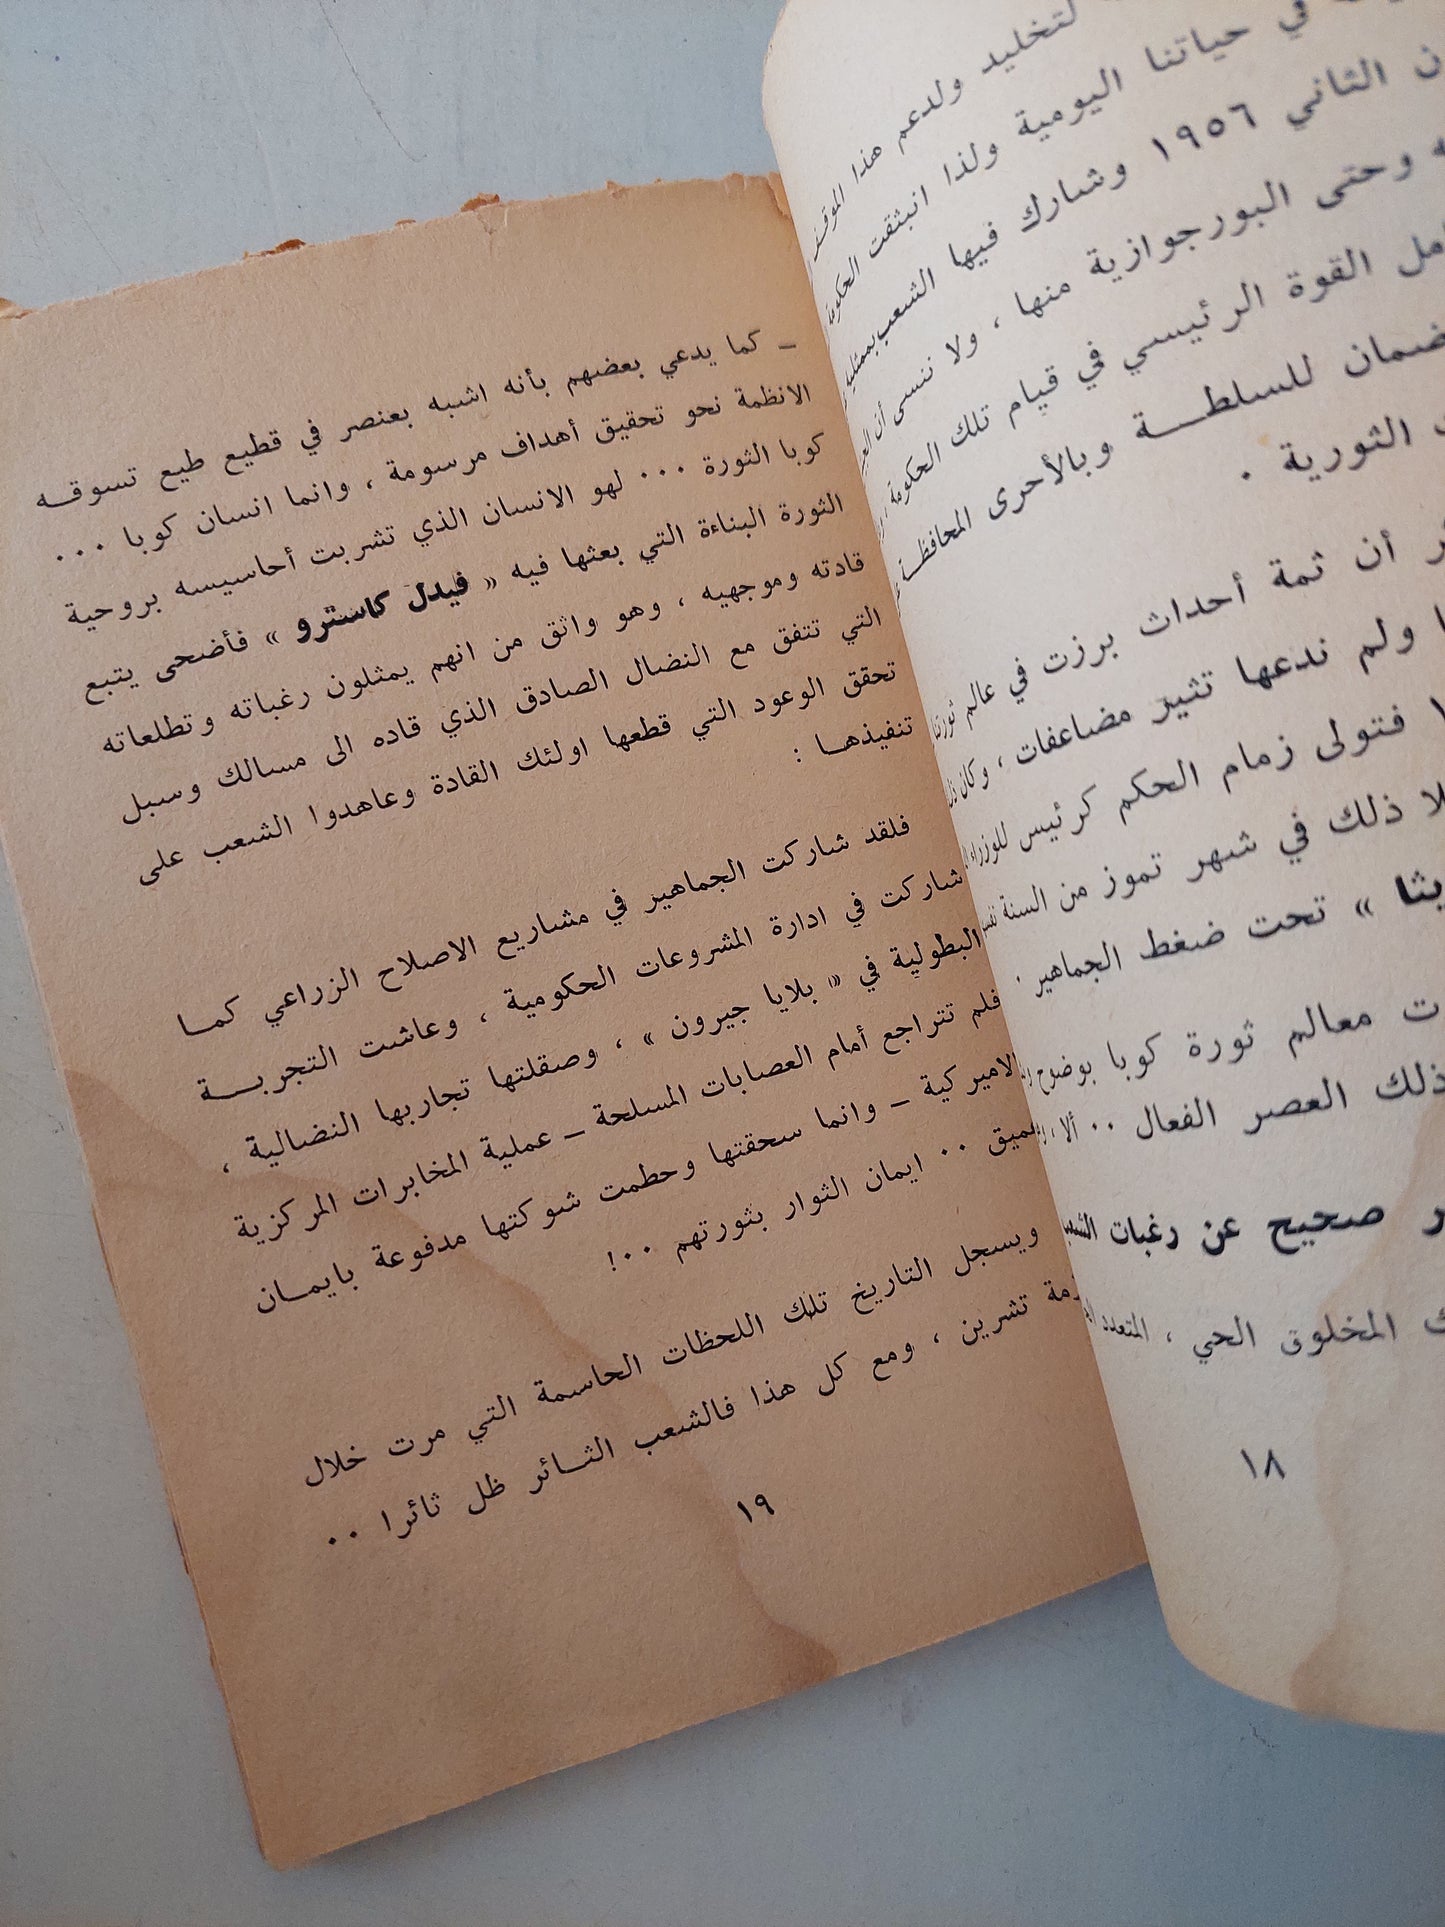 لتخليد ولدعم هذا الموقف
في حياتنا اليومية ولذا انبثقت الحكومة
الثاني ١٩٥٦ وشارك فيها الشعب بممثليه
وحتى البورجوازية منها ، ولا ننسى أن
القوة الرئيسي في قيام تلك الحكومة ،
ضمان للسلطـــة وبالأحرى المحافظة
الثورية .
أن ثمة أحداث برزت في عالم ثورتنا
ولم ندعها تثير مضاعفات ، وكان
فتولى زمام الحكم كرئيس للوزراء
ذلك في شهر تموز من السنة
» تحت ضغط الجماهير .
معالم ثورة كوبا بوضوح
ذلك العصر الفعال .. ألا
صحيح عن رغبات الشعب
المخلوق الحي ، المتعدد
١٨
ـ كما يدعي بعضهم بأنه اشبه بعنصر في قطيع طيع تسوقـه
الانظمة نحو تحقيق أهداف مرسومة ، وانما انسان كوبا ...
كوبا الثورة ... لهو الانسان الذي تشربت أحاسيسه بروحية
الثورة البناءة التي بعثها فيه « فيدل كاسترو » فأضحى يتبع
قادته وموجهيه ، وهو واثق من انهم يمثلون رغباته وتطلعاته
التي تتفق مع النضال الصادق الذي قاده الى مسالك وسبل
تحقق الوعود التي قطعها اولئك القادة وعاهدوا الشعب على
تنفيذهـا :
فلقد شاركت الجماهير في مشاريع الاصلاح الزراعي كمـا
شاركت في ادارة المشروعات الحكومية ، وعاشت التجربـــة
البطولية في « بلايا جيرون » ، وصقلتها تجاربها النضالية ،
فلم تتراجع أمام العصابات المسلحة ـ عملية المخابرات المركزية
الاميركية ـ وانما سحقتها وحطمت شوكتها مدفوعة بايمـان
عميق .. ايمان الثوار بثورتهم ..!
ويسجل التاريخ تلك اللحظات الحاسمة التي مرت خلال
أزمة تشرين ، ومع كل هذا فالشعب الثـائر ظل ثائرا ..
١٩